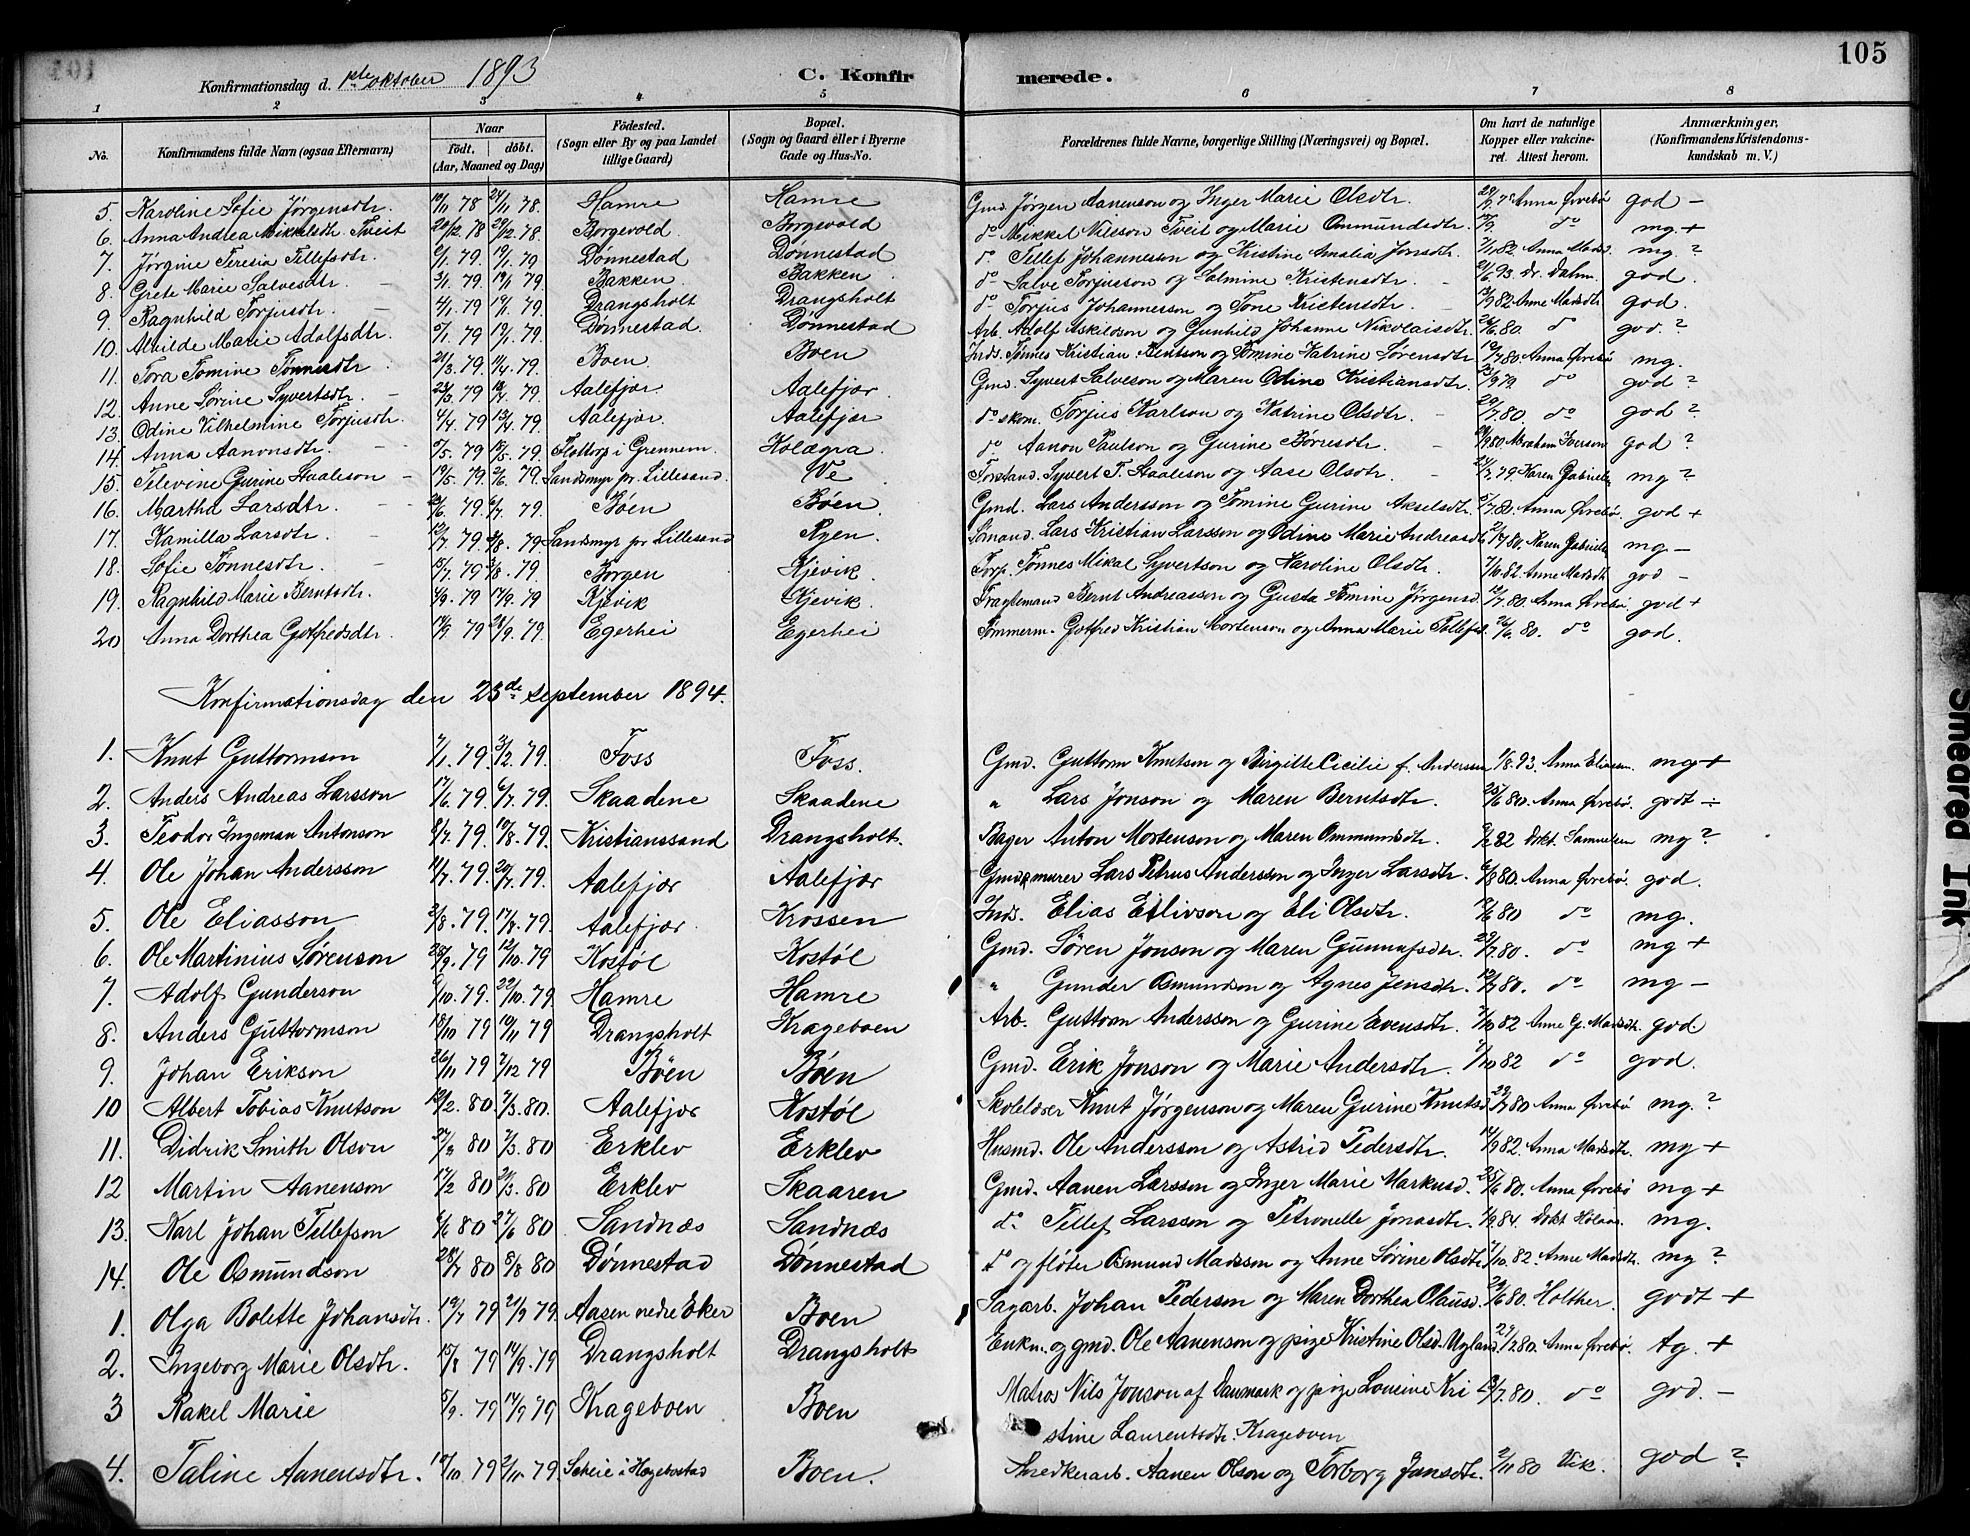 105
Konfirmationsdag d. 1ste oktober 1893 C. Konfirmerede.
1 2 3 4 5 6 7 8
No. Konfirmandens fulde Navn (ogsaa Efternavn) Naar Født. døbt. (Aar, Maaned og Dag) Fødested. (Sogn eller By og paa Landet tillige Gaard) Bopæl. (Sogn og Gaard eller i Byerne Gade og Hus-No. Forældrenes fulde Navne, borgerlige Stilling (Næringsvei) og Bopæl. Om havt de naturlige Kopper eller vakcineret. Attest herom. Anmærkninger. (Konfirmandens Kristendomskundskab m. V.)
5. Karoline Sofie Jørgensdtr. 19/11 78 24/11 78. Hamre Hamre Gmd. Jörgen Aanenson og Inger Marie Olsdtr. Anna Øvrebö god -
6. Anna Andrea Mikkelsdtr. Tveit 20/12. 78 29/12. 78. Borgevold. Borgevold do Mikkel Nilsson Tveit og Marie Ommundsdtr. do mg. +
7. Jørgine Teresia Tellefsdtr. 6/1. 79 19/1. 79 Dønnestad Dønnestad do Tellef Johanneson og Kristine Amalia Jonsdtr. 7/1 82. Anna Madsd. mg. ?
8. Grete Marie Salvesdtr. 3/1. 79. 19/1 79. Bakken Bakken. do Salve Torjusson og Salmine Kristensdtr. 21/6 93. Dr. Dahm god.
9. Ragnhild Torjusdtr. 4/1. 79 19/1. 79. Drangsholt Drangsholt do Torjus Johannesson og Tone Kristensdtr. 13/9 82 Anne Madsdtr god.
10. Alvilde Marie Adolfsdtr. 5/1. 79 19/1. 79. Dønnestad. Dønnestad Arb. Adolf Askildson og Gunhild Johanne Nikolaisdtr. 26/6. 80. do god. ?
11. Tora Tomine Tønnesdtr 21/3. 79. 14/4. 79. Boen Boen Inds. Tønnes Kristian Bentson og Tomine Katrine Sørensdtr. 10/7 80. Anna Øvrebö mg.
12. Anne Sørine Syvertsdtr. 22/3. 79 13/4. 79. Aalefjær. Aalefjær Gmd. Syvert Salveson og Maren Odine Kristiansdtr. 23/9 79 do god ?
13. Odine Vilhelmine Torjusdtr. 4/4. 79 13/4. 79. Aalefjær. Aalefjær do skom. Torjus Karlson og Katrine Olsdtr. 20/7. 80. do god ?
14. Anna Aanonsdtr. 5/5. 79 18/5. 79. Flottorp i Grennem. Kolægra do Aanon Paulson og Gurine Børresdtr. 29/9 80 Abraham Iverson god ?
15. Televine Gurine Staaleson 19/5. 79. 2/6. 79. Sandsmyr pr. Lillesand. Ve Forstand. Syvert T. Staaleson og Aase Olsdtr. 24/7. 79. Karen Gabrielsen mg ?
16. Martha Larsdtr. 22/6. 79. 6/7. 79. Bøen Bøen. Gmd. Lars Andersson og Tomine Gurine Akselsdtr. 5/7 80. Anna Øvrebö. god +
17. Kamilla Larsdtr. 12/7. 79. 3/8. 79. Sandsmyr pr Lillesand Ryen. Sömand. Lars Kristian Larsson og Odine Marie Andreasd. 21/7 80. Karen Gabriels. mg -
18. Sofie Tønnesdtr. 15/7. 79. 3/8. 79. Borgen Kjevik. Forp. Tønnes Mikal Syvertson og Karoline Olsdtr. 7/10. 82. Anne Madsdtr god -
19. Ragnhild Marie Berntsdtr. 4/9. 79 17/9. 79 Kjevik Kjevik. Fragtemand Bernt Andreasson og Gusta Tomine Jörgensd. 12/7. 80. Anna Øvrebö. god +
20 Anna Dorthea Gotfredsdtr. 14/9 79 28/9. 79. Egerhei Egerhei Tømmerm. Gotfred Kristian Mortenson og Anna Marie Tollefsd. 26/6. 80. do god.
Konfirmationsdag den 23de september 1894.
1. Knut Guttormson 7/1. 79. 3/2. 79. Foss Foss. Gmd. Guttorm Knutson og Birgitte Cicilie f. Anderssen 1/8. 93. Anna Eliassen. mg +
2. Anders Andreas Larsson 17/6. 79. 6/7. 79. Skaadene Skaadene " Lars Jonson og Maren Berntsdtr. 25/6 80. Anna Øvrebö. godt ÷
3. Teodor Ingeman Antonson 8/7. 79. 10/8. 79. Kristianssand Drangsholt. Bager Anton Mortenson og Maren Ommundsdtr. 82 Dokt. Samuelsen mg ?
4. Ole Johan Andersson 11/7. 79. 20/7. 79. Aalefjær Aalefjær Gmd & murer Lars Petrus Andersson og Inger Larsdtr. 6/8 80. Anna Øvrebö. god.
5. Ole Eliasson 2/8. 79. 17/8. 79. Aalefjær. Krossen Inds. Elias Eilivson og Eli Olsdtr. 80 do mg.
6. Ole Martinius Sørenson 25/9. 79 12/10. 79 Kostøl Kostøl Gmd. Sören Jonson og Maren Gunnufsdtr. 29/7. 80. do mg +
7. Adolf Gunderson 6/10. 79. 22/10. 79. Hamre Hamre " Gunder Osmundson og Agnes Jensdtr. 12/7 80. do mg -
8. Anders Guttormson 18/10 79 19/11 79 Drangsholt Krageboen Arb. Guttorm Andersson og Gurine Evensdtr. 7/10 82 Anne G. Madsdtr. god
9. Johan Erikson 26/11 79 7/12 79 Böen Böen Gmd. Erik Jonson og Marie Andersdtr. 7/10 82 do god.
10 Albert Tobias Knutson 12/2. 80. 7/3. 80. Aalefjær Kostøl Skolelærer Knut Jörgenson og Maren Gurine Knutsd 29/7 80 Anna Øvrebö mg. ?
11. Didrik Smith Olson 80 7/3. 80 Erklev Erklev Husmd. Ole Andersson og Astrid Pedersdtr. 14/9 82. Anna Madsdtr. mg +
12 Martin Aanenson 17/2 80 21/3. 80 Erklev Skaaren Gmd. Aanen Larsson og Inger Marie Markusd. 25/6 80. Anna Øvrebö mg +
13. Karl Johan Tellefson 6/6 80 27/6 80 Sandnæs Sandnæs do Tellef Larsson og Petronelle Jonasdtr. 84. Dokt. mg.
14. Ole Osmundson 28/7 80 8/8 80 Dönnestad Dönnestad do og fløter Osmund Madsson og Anne Sörine Olsdtr. 7/10. 82. Anne Madsdtr. mg ?
1. Olga Bolette Johansdtr. 19/7 79 21/9 79. Aasen nedre Eker Boen Sagarb. Johan Pederson og Maren Dorthea Olausd. 24/6 80. Holther. godt +
2. Ingeborg Marie Olsdtr. 15/8 79 14/9. 79 Drangsholt Drangsholt Enkm. og gmd. Ole Aanenson og pige Kristine Olsd. Ugland. 27/2 80. Anna Øvrebö. tg. +
3 Rakel Marie 5/9. 79 14/9 79 Krageboen Boen Matros Nils Jonson af Danmark og pige Lovine Kri 13/7. 80. do god. -
stine Laurentsdtr. Krageboen
4. Taline Aanensdtr. 10/10. 79 2/11. 79. Scheie i Hægebostad Boen. Snedkerarb. Aanen Olson og Torborg Jansdtr. 2/11 80 Vik. god ?
Smeared Ink